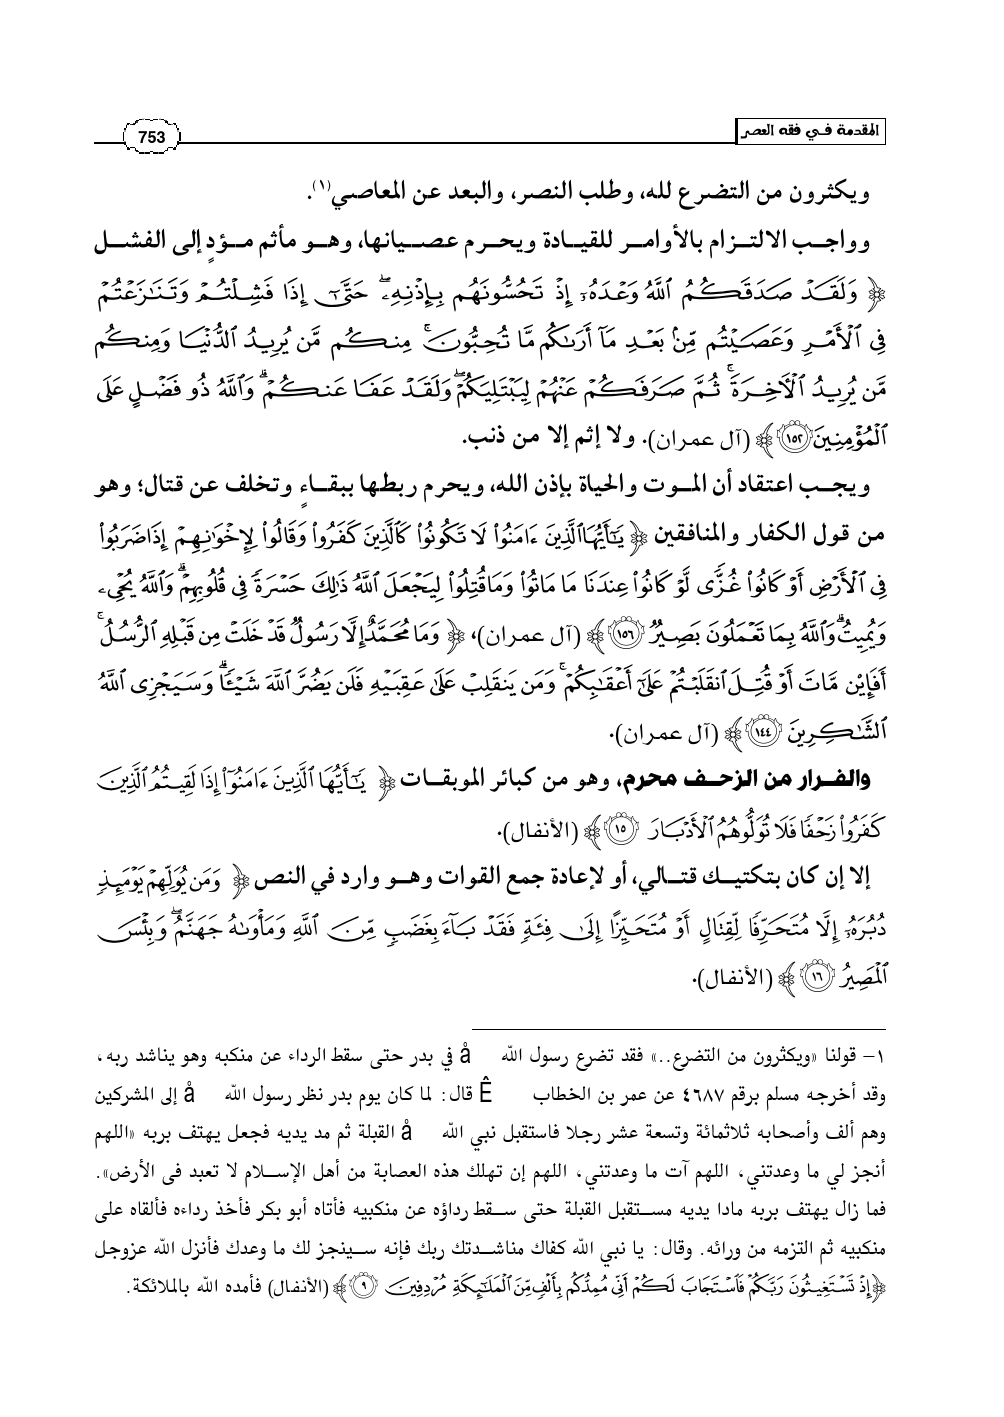 المقدمة في فقه العصر
753
ويكثرون من التضرع لله، وطلب النصر، والبعد عن المعاصي(١).
وواجب الالتزام بالأوامر للقيادة ويحرم عصيانها، وهو مأثم مؤدٍ إلى الفشل
﴿ وَلَقَدْ صَدَقَكُمُ ٱللَّهُ وَعْدَهُۥٓ إِذْ تَحُسُّونَهُم بِإِذْنِهِۦ ۖ حَتَّىٰٓ إِذَا فَشِلْتُمْ وَتَنَٰزَعْتُمْ
فِى ٱلْأَمْرِ وَعَصَيْتُم مِّنۢ بَعْدِ مَآ أَرَىٰكُم مَّا تُحِبُّونَ ۚ مِنكُم مَّن يُرِيدُ ٱلدُّنْيَا وَمِنكُم
مَّن يُرِيدُ ٱلْآخِرَةَ ۚ ثُمَّ صَرَفَكُمْ عَنْهُمْ لِيَبْتَلِيَكُمْ ۖ وَلَقَدْ عَفَا عَنكُمْ ۗ وَٱللَّهُ ذُو فَضْلٍ عَلَى
ٱلْمُؤْمِنِينَ ١٥٢ ﴾ (آل عمران). ولا إثم إلا من ذنب.
ويجب اعتقاد أن الموت والحياة بإذن الله، ويحرم ربطها ببقاءٍ وتخلف عن قتال؛ وهو
من قول الكفار والمنافقين ﴿ يَٰٓأَيُّهَا ٱلَّذِينَ ءَامَنُوا۟ لَا تَكُونُوا۟ كَٱلَّذِينَ كَفَرُوا۟ وَقَالُوا۟ لِإِخْوَٰنِهِمْ إِذَا ضَرَبُوا۟
فِى ٱلْأَرْضِ أَوْ كَانُوا۟ غُزًّى لَّوْ كَانُوا۟ عِندَنَا مَا مَاتُوا۟ وَمَا قُتِلُوا۟ لِيَجْعَلَ ٱللَّهُ ذَٰلِكَ حَسْرَةً فِى قُلُوبِهِمْ ۗ وَٱللَّهُ يُحْىِۦ
وَيُمِيتُ ۗ وَٱللَّهُ بِمَا تَعْمَلُونَ بَصِيرٌ ١٥٦ ﴾ (آل عمران)، ﴿ وَمَا مُحَمَّدٌ إِلَّا رَسُولٌ قَدْ خَلَتْ مِن قَبْلِهِ ٱلرُّسُلُ ۚ
أَفَإِي۟ن مَّاتَ أَوْ قُتِلَ ٱنقَلَبْتُمْ عَلَىٰٓ أَعْقَٰبِكُمْ ۚ وَمَن يَنقَلِبْ عَلَىٰ عَقِبَيْهِ فَلَن يَضُرَّ ٱللَّهَ شَيْـًٔا ۗ وَسَيَجْزِى ٱللَّهُ
ٱلشَّٰكِرِينَ ١٤٤ ﴾ (آل عمران).
والفرار من الزحف محرم، وهو من كبائر الموبقات ﴿ يَٰٓأَيُّهَا ٱلَّذِينَ ءَامَنُوٓا۟ إِذَا لَقِيتُمُ ٱلَّذِينَ
كَفَرُوا۟ زَحْفًا فَلَا تُوَلُّوهُمُ ٱلْأَدْبَارَ ١٥ ﴾ (الأنفال).
إلا إن كان بتكتيك قتالي، أو لإعادة جمع القوات وهو وارد في النص ﴿ وَمَن يُوَلِّهِمْ يَوْمَئِذٍ
دُبُرَهُۥٓ إِلَّا مُتَحَرِّفًا لِّقِتَالٍ أَوْ مُتَحَيِّزًا إِلَىٰ فِئَةٍ فَقَدْ بَآءَ بِغَضَبٍ مِّنَ ٱللَّهِ وَمَأْوَىٰهُ جَهَنَّمُ ۖ وَبِئْسَ
ٱلْمَصِيرُ ١٦ ﴾ (الأنفال).
١- قولنا «ويكثرون من التضرع..» فقد تضرع رسول الله å في بدر حتى سقط الرداء عن منكبه وهو يناشد ربه،
وقد أخرجه مسلم برقم ٤٦٨٧ عن عمر بن الخطاب Ê قال: لما كان يوم بدر نظر رسول الله å إلى المشركين
وهم ألف وأصحابه ثلاثمائة وتسعة عشر رجلا فاستقبل نبي الله å القبلة ثم مد يديه فجعل يهتف بربه «اللهم
أنجز لي ما وعدتني، اللهم آت ما وعدتني، اللهم إن تهلك هذه العصابة من أهل الإسلام لا تعبد فى الأرض».
فما زال يهتف بربه مادا يديه مستقبل القبلة حتى سقط رداؤه عن منكبيه فأتاه أبو بكر فأخذ رداءه فألقاه على
منكبيه ثم التزمه من ورائه. وقال: يا نبي الله كفاك مناشدتك ربك فإنه سينجز لك ما وعدك فأنزل الله عزوجل
﴿ إِذْ تَسْتَغِيثُونَ رَبَّكُمْ فَٱسْتَجَابَ لَكُمْ أَنِّى مُمِدُّكُم بِأَلْفٍ مِّنَ ٱلْمَلَٰٓئِكَةِ مُرْدِفِينَ ٩ ﴾ (الأنفال) فأمده الله بالملائكة.